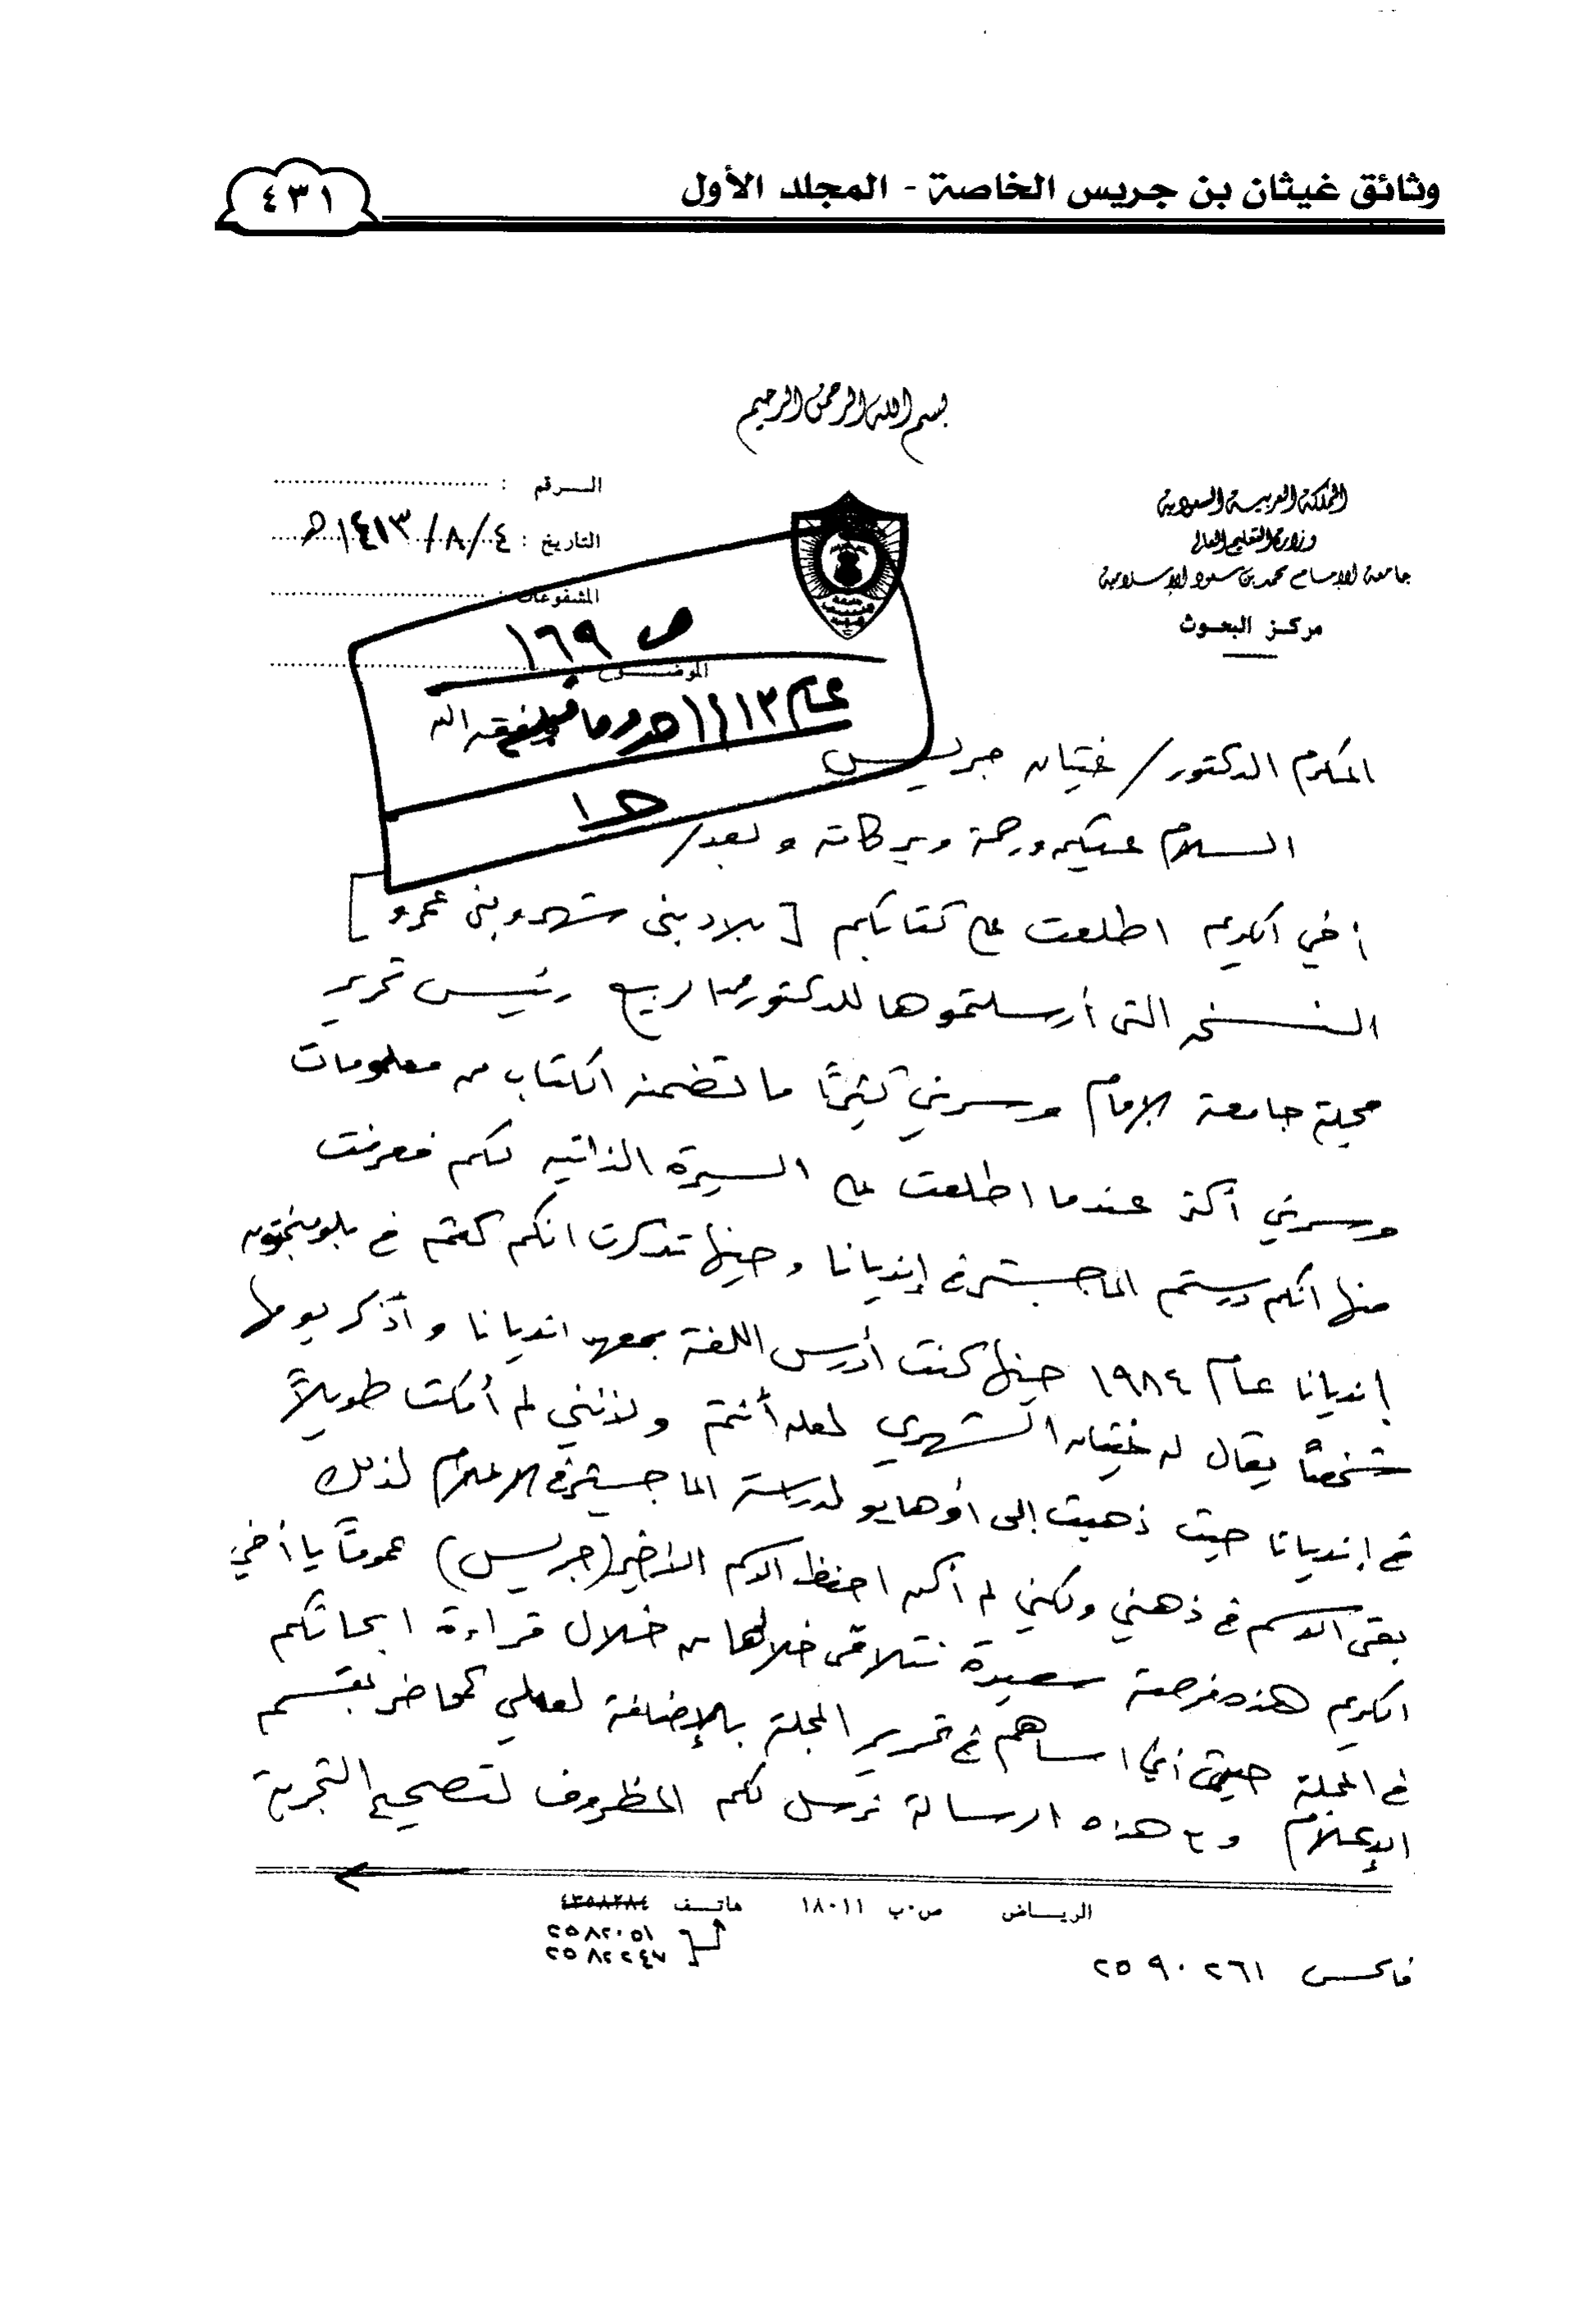 وثائق غيثان بن جريس الخاصة - المجلد الأول
٤٣١
بسم الله الرحمن الرحيم
المملكة العربية السعودية
وزارة التعليم العالي
جامعة الإمام محمد بن سعود الإسلامية
مركز البحوث
الرقم :
التاريخ : ٤/ ٨/ ١٤١٣ هـ
المشفوعات :
الموضوع
ص ١٦٩
عام ١٤١٣هـ وما
المكرم الدكتور / غيثان جريس
السلام عليكم ورحمة وبركاته وبعد/
أخي الكريم اطلعت على كتابكم [ بلاد بني شهر وبني عمرو ]
النسخة التي أرسلتموها للدكتور محمد الربيع رئيس تحرير
مجلة جامعة الإمام وسرني كثيرًا ما تضمنه الكتاب من معلومات
وسرني أكثر عندما اطلعت على السيرة الذاتية لكم فعرفت
منها أنكم درستم الماجستير في إنديانا وحينها تذكرت انكم كنتم في بلومنجتون
إنديانا عام ١٩٨٤ حينها كنت أدرس اللغة بمعهد انديانا وأذكر يومها
شخصًا يقال له غيثان الشهري لعله أنتم ولأنني لم أمكث طويلاً
في إنديانا حيث ذهبت إلى أوهايو لدراسة الماجستير في الاعلام لذلك
بقى الاسم في ذهني ولكني لم أكن احفظ الاسم الأخير (جريس) عمومًا يا أخي
الكريم هذه فرصة سعيدة نتلاقى خلالها من خلال قراءة ابحاثكم
في المجلة حيث أني اساهم في تحرير المجلة بالإضافة لعملي كمحاضر بقسم
الإعلام و مع هذه الرسالة نرسل لكم المظروف لتصحيح التجربة
الرياض ص.ب ١٨٠١١ هاتف ٤٣٥٨٢٨٤
٢٥٨٢٠٥١
٢٥٨٢٢٤٧
فاكس ٢٥٩٠٢٦١